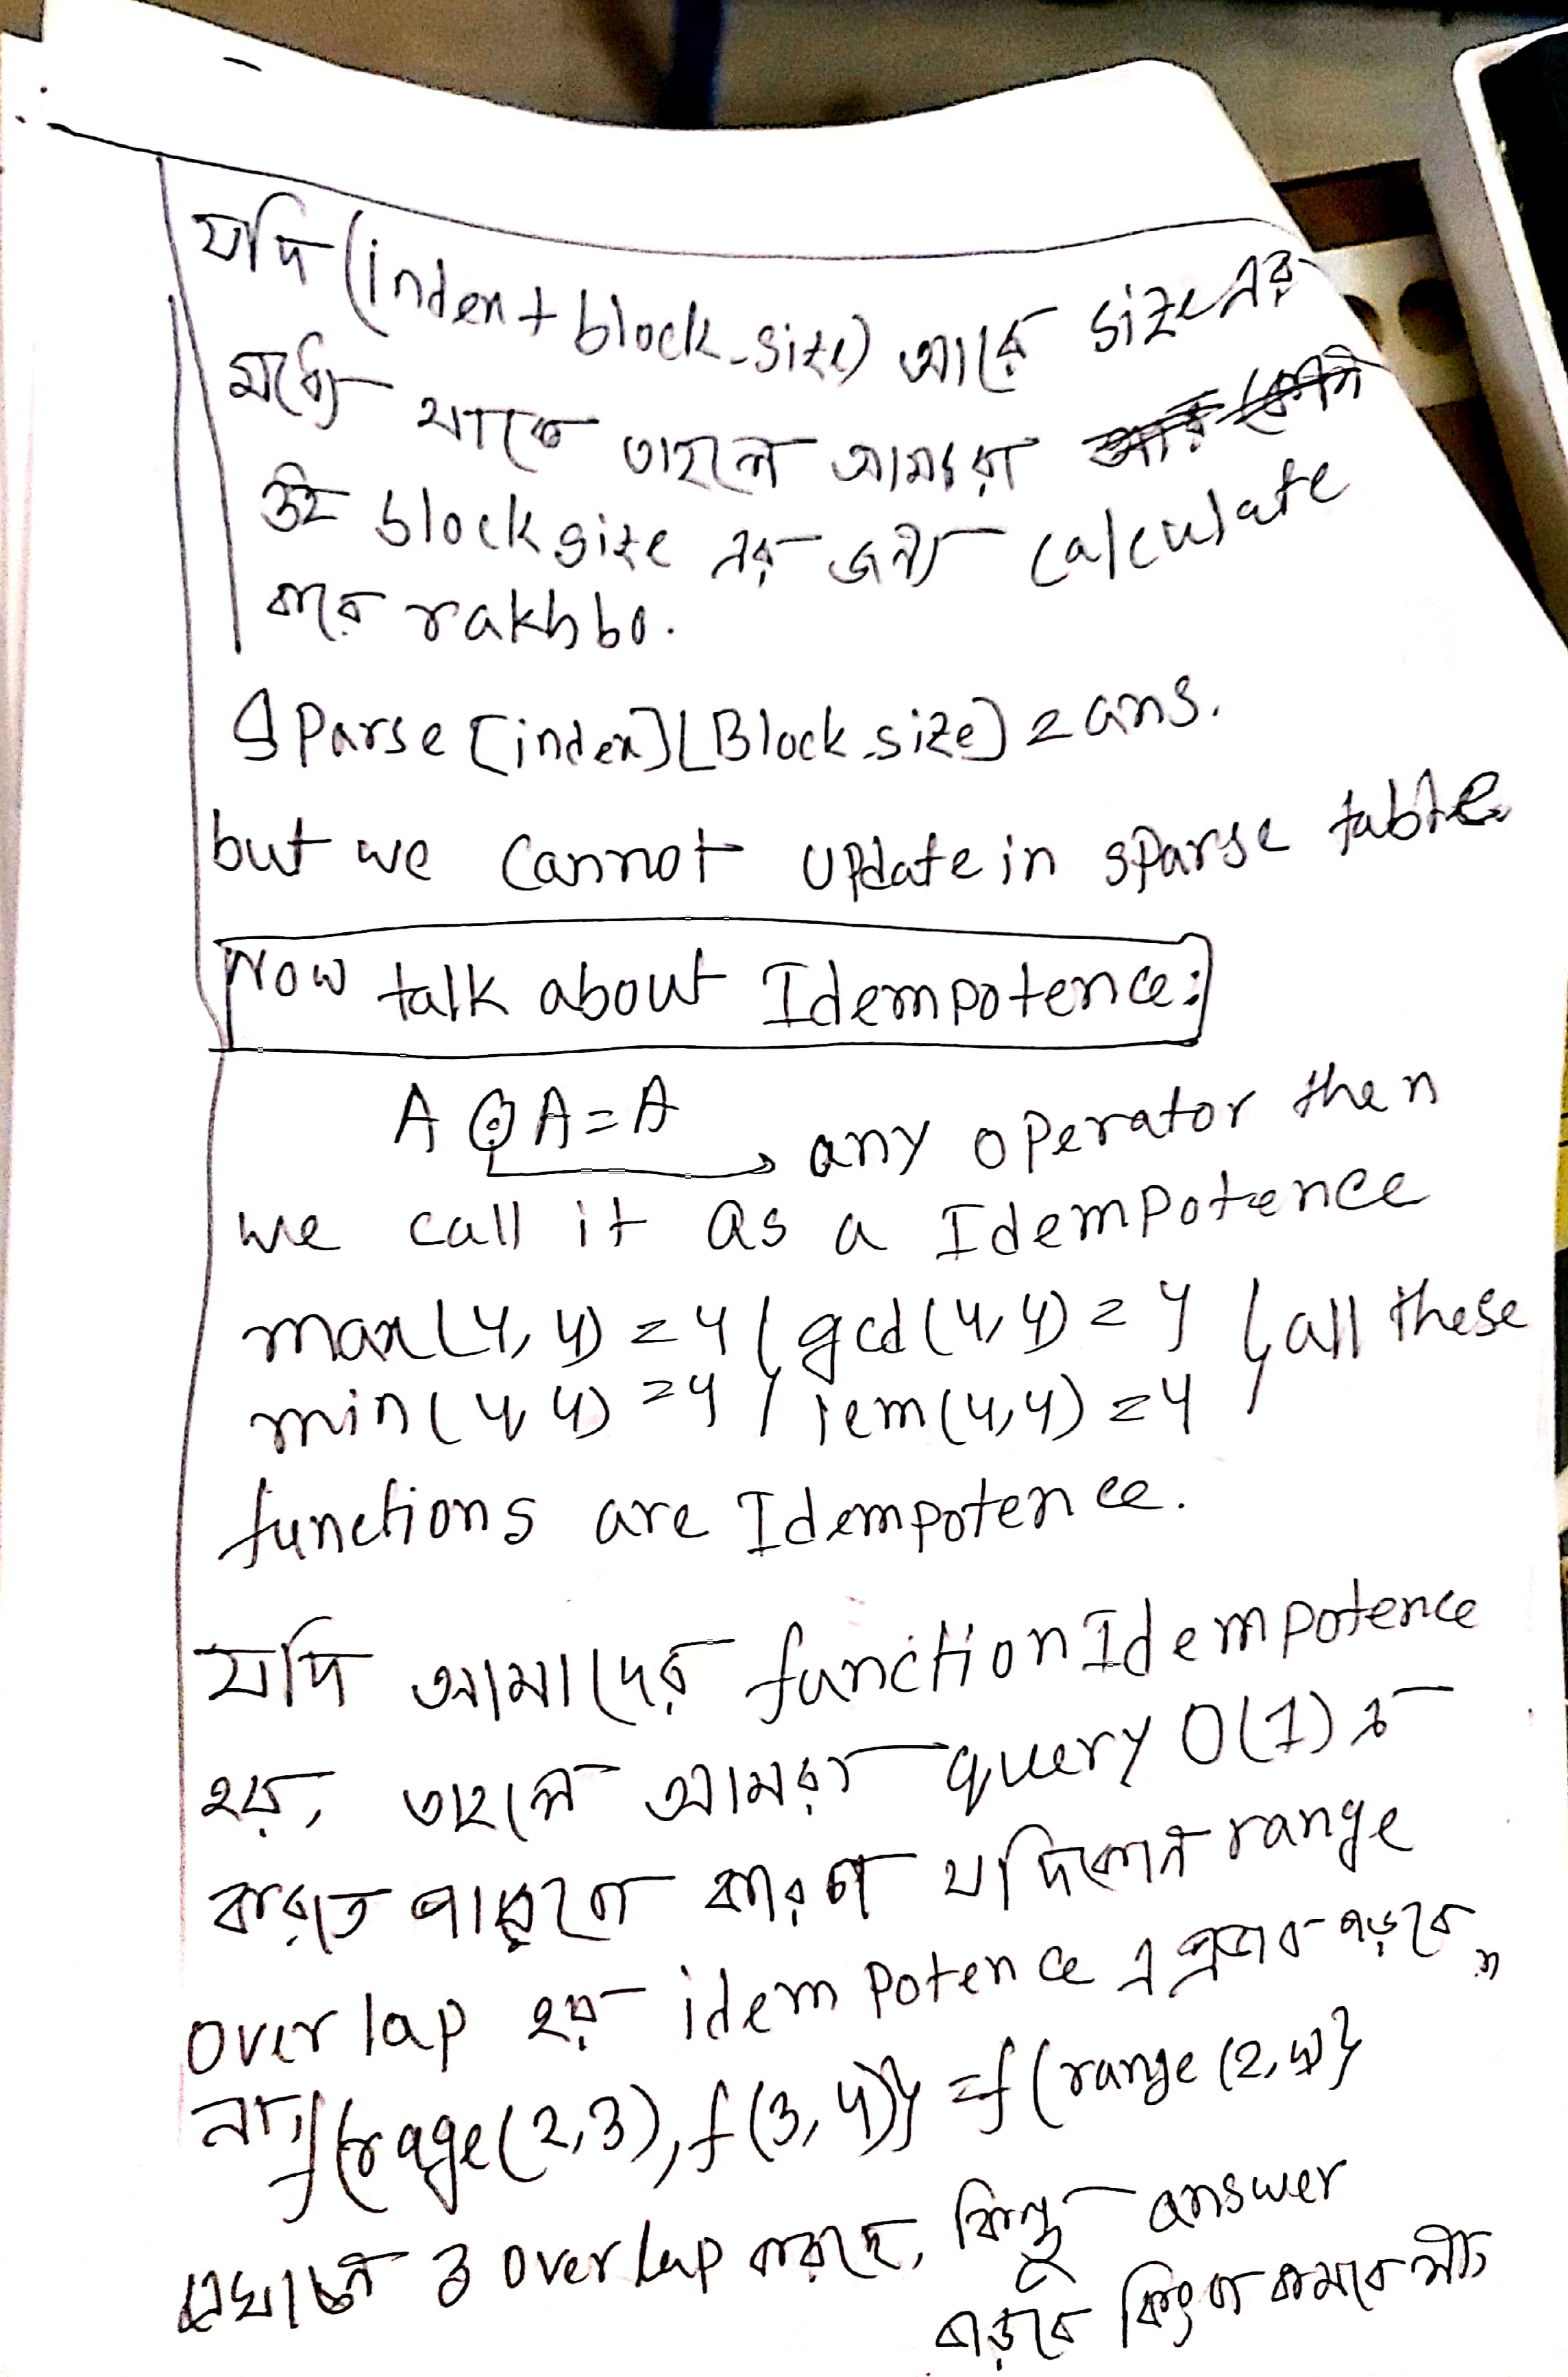 যদি (index + block_size) arr size এর
মধ্যে থাকে তাহলে আমরা
ঐ block size এর জন্য calculate
করে rakhbo.
Sparse [index][Block size] = ans.
but we cannot update in sparse table
Now talk about Idempotence:
A @ A = A → any operator then
we call it as a Idempotence
max(4, 4) = 4 / gcd(4, 4) = 4 } all these
min(4, 4) = 4 / lcm(4,4) = 4
functions are Idempotence.
যদি আমাদের function Idempotence
হয়, তাহলে আমরা query O(1) এ
করতে পারবো কারণ যদি কোন range
overlap হয় idempotence এ প্রভাব পড়বে
না, f{rage(2,3), f(3,4)} = f(range(2,4)}
এখানে 3 overlap করছে, কিন্তু answer
বাড়বে কিংবা কমবে না